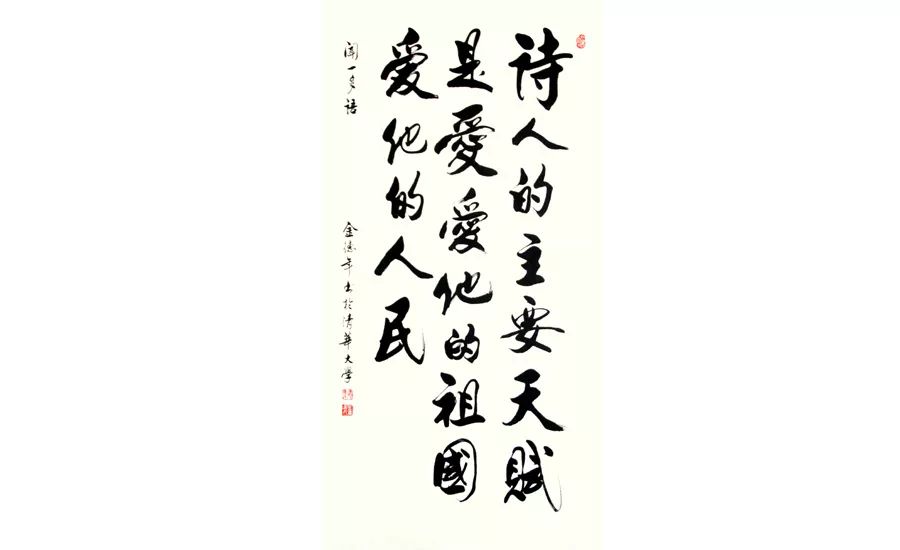 诗人的主要天赋
是爱愛他的祖國
爱他的人民
闻一多语
金德年书於清華大学